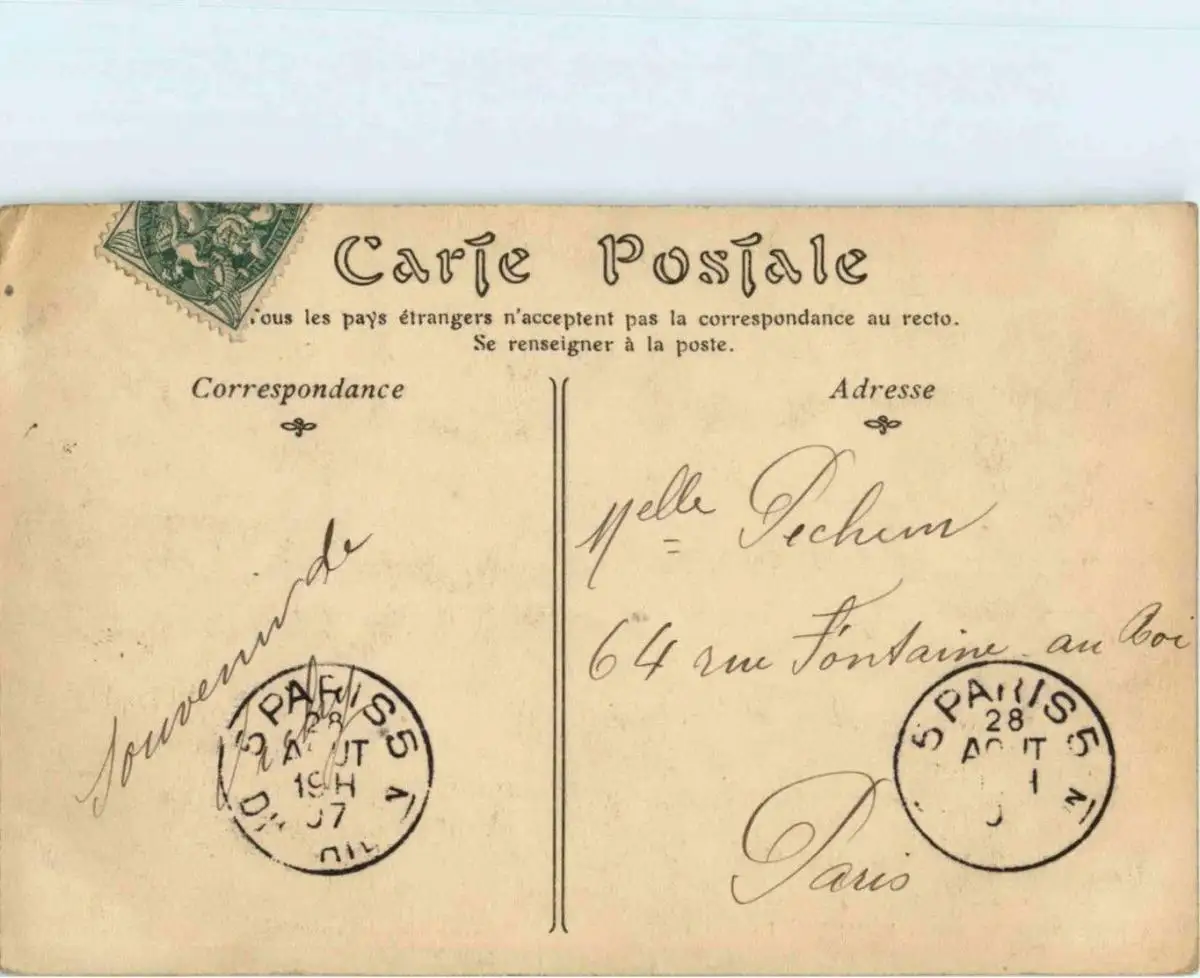 Carte Postale
Tous les pays étrangers n'acceptent pas la correspondance au recto.
Se renseigner à la poste.
Correspondance
Adresse
Souvenir de
Melle
64 rue Fontaine au Roi
Paris
5 PARIS 5
28
AOUT
19H
07
5 PARIS 5
28
AOUT